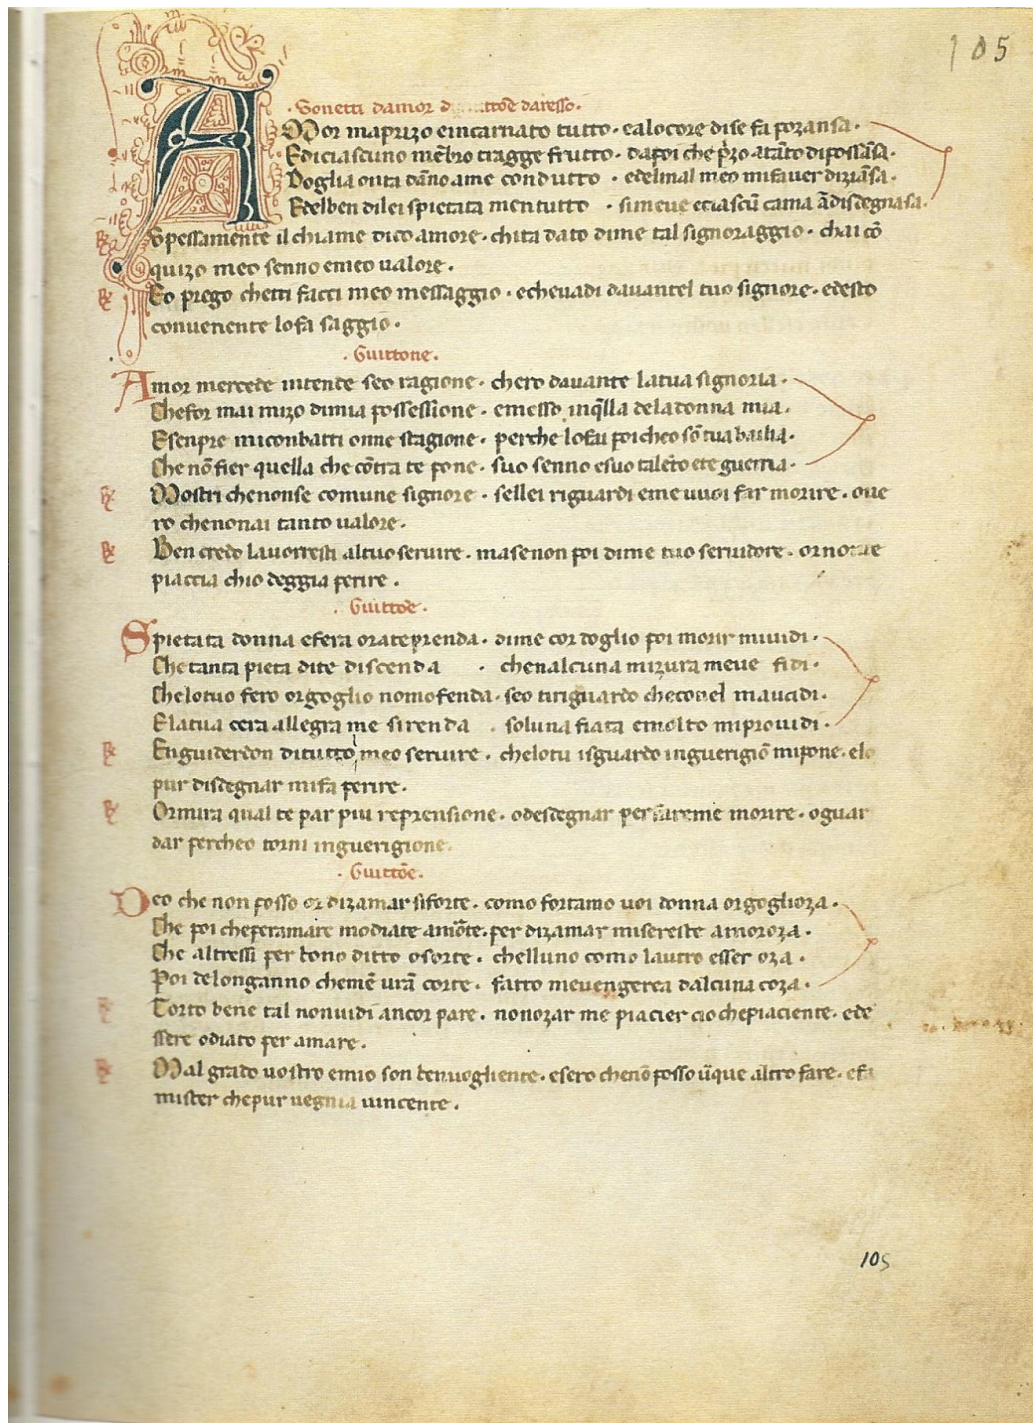 105
· Sonetti damor d ttōe daresso ·
AMor maprizo eincarnato tutto · ealocore dise fa pozansa ·
Ediciascuno mēbro tragge frutto · dapoi che p̄zo atāto dipossāsa ·
Doglia onta dāno ame condutto · edelmal meo mifauer diziāsa ·
Edelben dilei spietata mentutto · simeue eciascū cama ādisdegnasa ·
Spessamente il chiame dico amore · chita dato dime tal signoraggio · chai cō
quizo meo senno emeo ualore ·
Eo prego chetti facci meo messaggio · echeuadi dauantel tuo signore · edesto
conueniente lofa saggio ·
· Guittone ·
Amor mercede intende seo ragione · chero dauante latua signoria ·
Chefor mai mizo dimia possessione · emesso inq̄lla deladonna mia ·
Esenpre miconbatti onne stagione · perche lofai poicheo sō tua bailia ·
Che nō fier quella che cōtra te pone · suo senno esuo talēto ete guerria ·
Mostri chenonse comune signore · sellei riguardi eme uuoi far morire · oue
ro chenonai tanto ualore ·
Ben credo lauorresti altuo seruire · masenon poi dime tuo seruidore · ornon te
piaccia chio deggia perire ·
· Guittōe ·
Spietata donna efera orateprenda · dime cor doglio poi morir miuidi ·
Che tanta pieta dite discenda · chenalcuna mizura meue fidi ·
Chelotuo fero orgoglio nomofenda · seo tiriguardo checonel maucidi ·
Elatua cera allegra me sirenda · soluna fiata emolto miprouidi ·
Enguiderdon ditutto meo seruire · chelotu isguardo inguerigiō mipone · elo
pur disdegnar mifa perire ·
Ormira qual te par piu reprensione · odesdegnar per fareme morire · oguar
dar percheo torni inguerigione ·
· Guittōe ·
Deo che non posso or dizamar siforte · como fortamo uoi donna orgoglioza ·
Che poi cheperamare modiate amōte · per dizamar misereste amoroza ·
Che altressi per bono ditto osorte · chelluno como lautro esser oza ·
Poi delonganno chemē urā corte · fatto meuengerea dalcuna coza ·
Torto bene tal nonuidi ancor pare · nonozar me piacier cio chepiaciente · ede
ssere odiato per amare ·
Mal grado uostro emio son benuogliente · esero chenō posso ūque altro fare · efa
mister chepur uegnia uincente ·
105